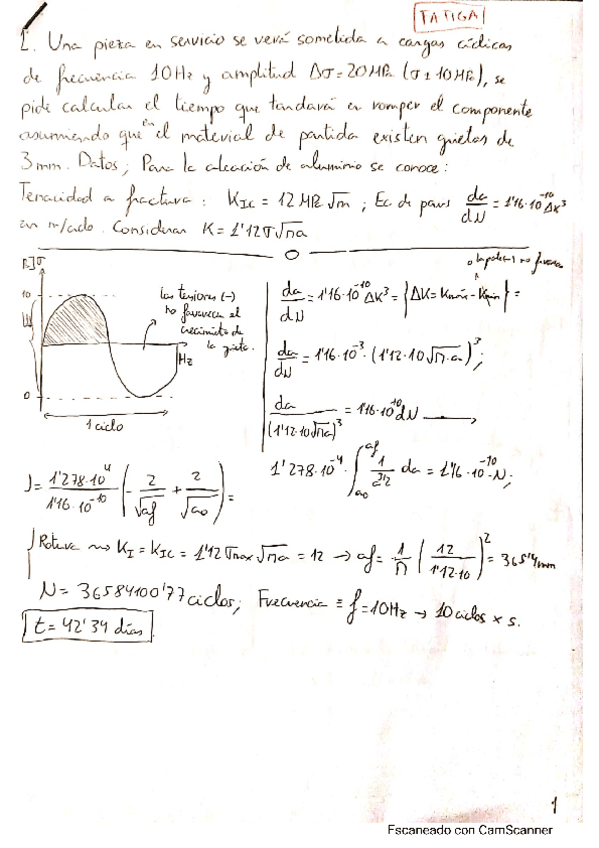 FATIGA
1. Una pieza en servicio se verá sometida a cargas cíclicas
de frecuencia 10Hz y amplitud Δσ=20MPa (σ±10MPa), se
pide calcular el tiempo que tardará en romper el componente
asumiendo que en el material de partida existen grietas de
3mm. Datos; Para la aleación de aluminio se conoce:
Tenacidad a fractura: KIC = 12 MPa √m ; Ec de parís da/dN = 1'16·10^-10 ΔK^3
en m/ciclo. Considerar K=1'12σ√πa
σ
10
0
Las tensiones (-)
no favorecen el
crecimiento de
la grieta.
Hz
1 ciclo
da/dN = 1'16·10^-10 ΔK^3 = {ΔK = Kmáx - Kmín} =
da/dN = 1'16·10^-3·(1'12·10√π·a)^3;
da/(1'12·10√πa)^3 = 1'16·10^-10 dN →
1'278·10^-4 · ∫ao^af 1/a^3/2 da = 1'16·10^-10·N;
N = 1'278·10^-4/1'16·10^-10 (-2/√af + 2/√ao) =
Rotura → KI = KIC = 1'12 σmax √πa = 12 → af = 1/π (12/1'12·10)^2 = 365'4mm
N = 36584100'77 ciclos; Frecuencia ≡ f=10Hz → 10 ciclos x s.
t = 42'34 días.
1
Escaneado con CamScanner